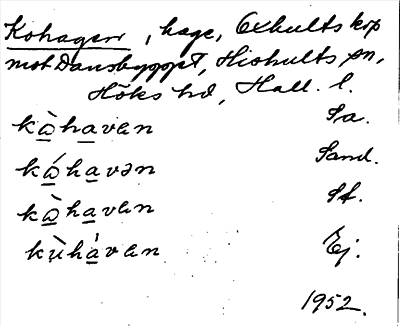 Kohagen, hage, Oxhults krp
mot Dansbygget, Hishults sn,
Höks hd, Hall. l.
kàhavan Sa.
káhavən Sand.
kàhavan St.
kùhávan Ej.
1952.